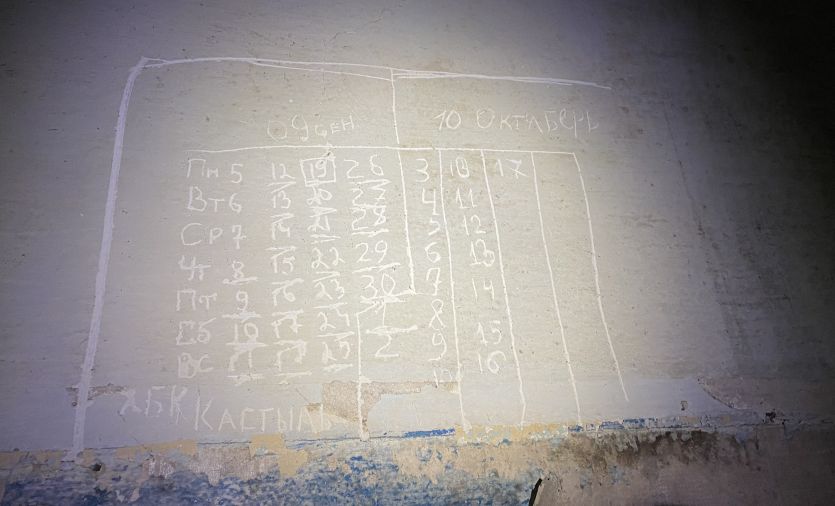 09 СЕН 10 ОКТЯБЕРЬ
ПН 5 12 19 26 3 10 17
ВТ 6 13 20 27 4 11
СР 7 14 21 28 5 12
ЧТ 8 15 22 29 6 13
ПТ 9 16 23 30 7 14
СБ 10 17 24 1 8 15
ВС 11 18 25 2 9 16
КАСТЫЛЬ